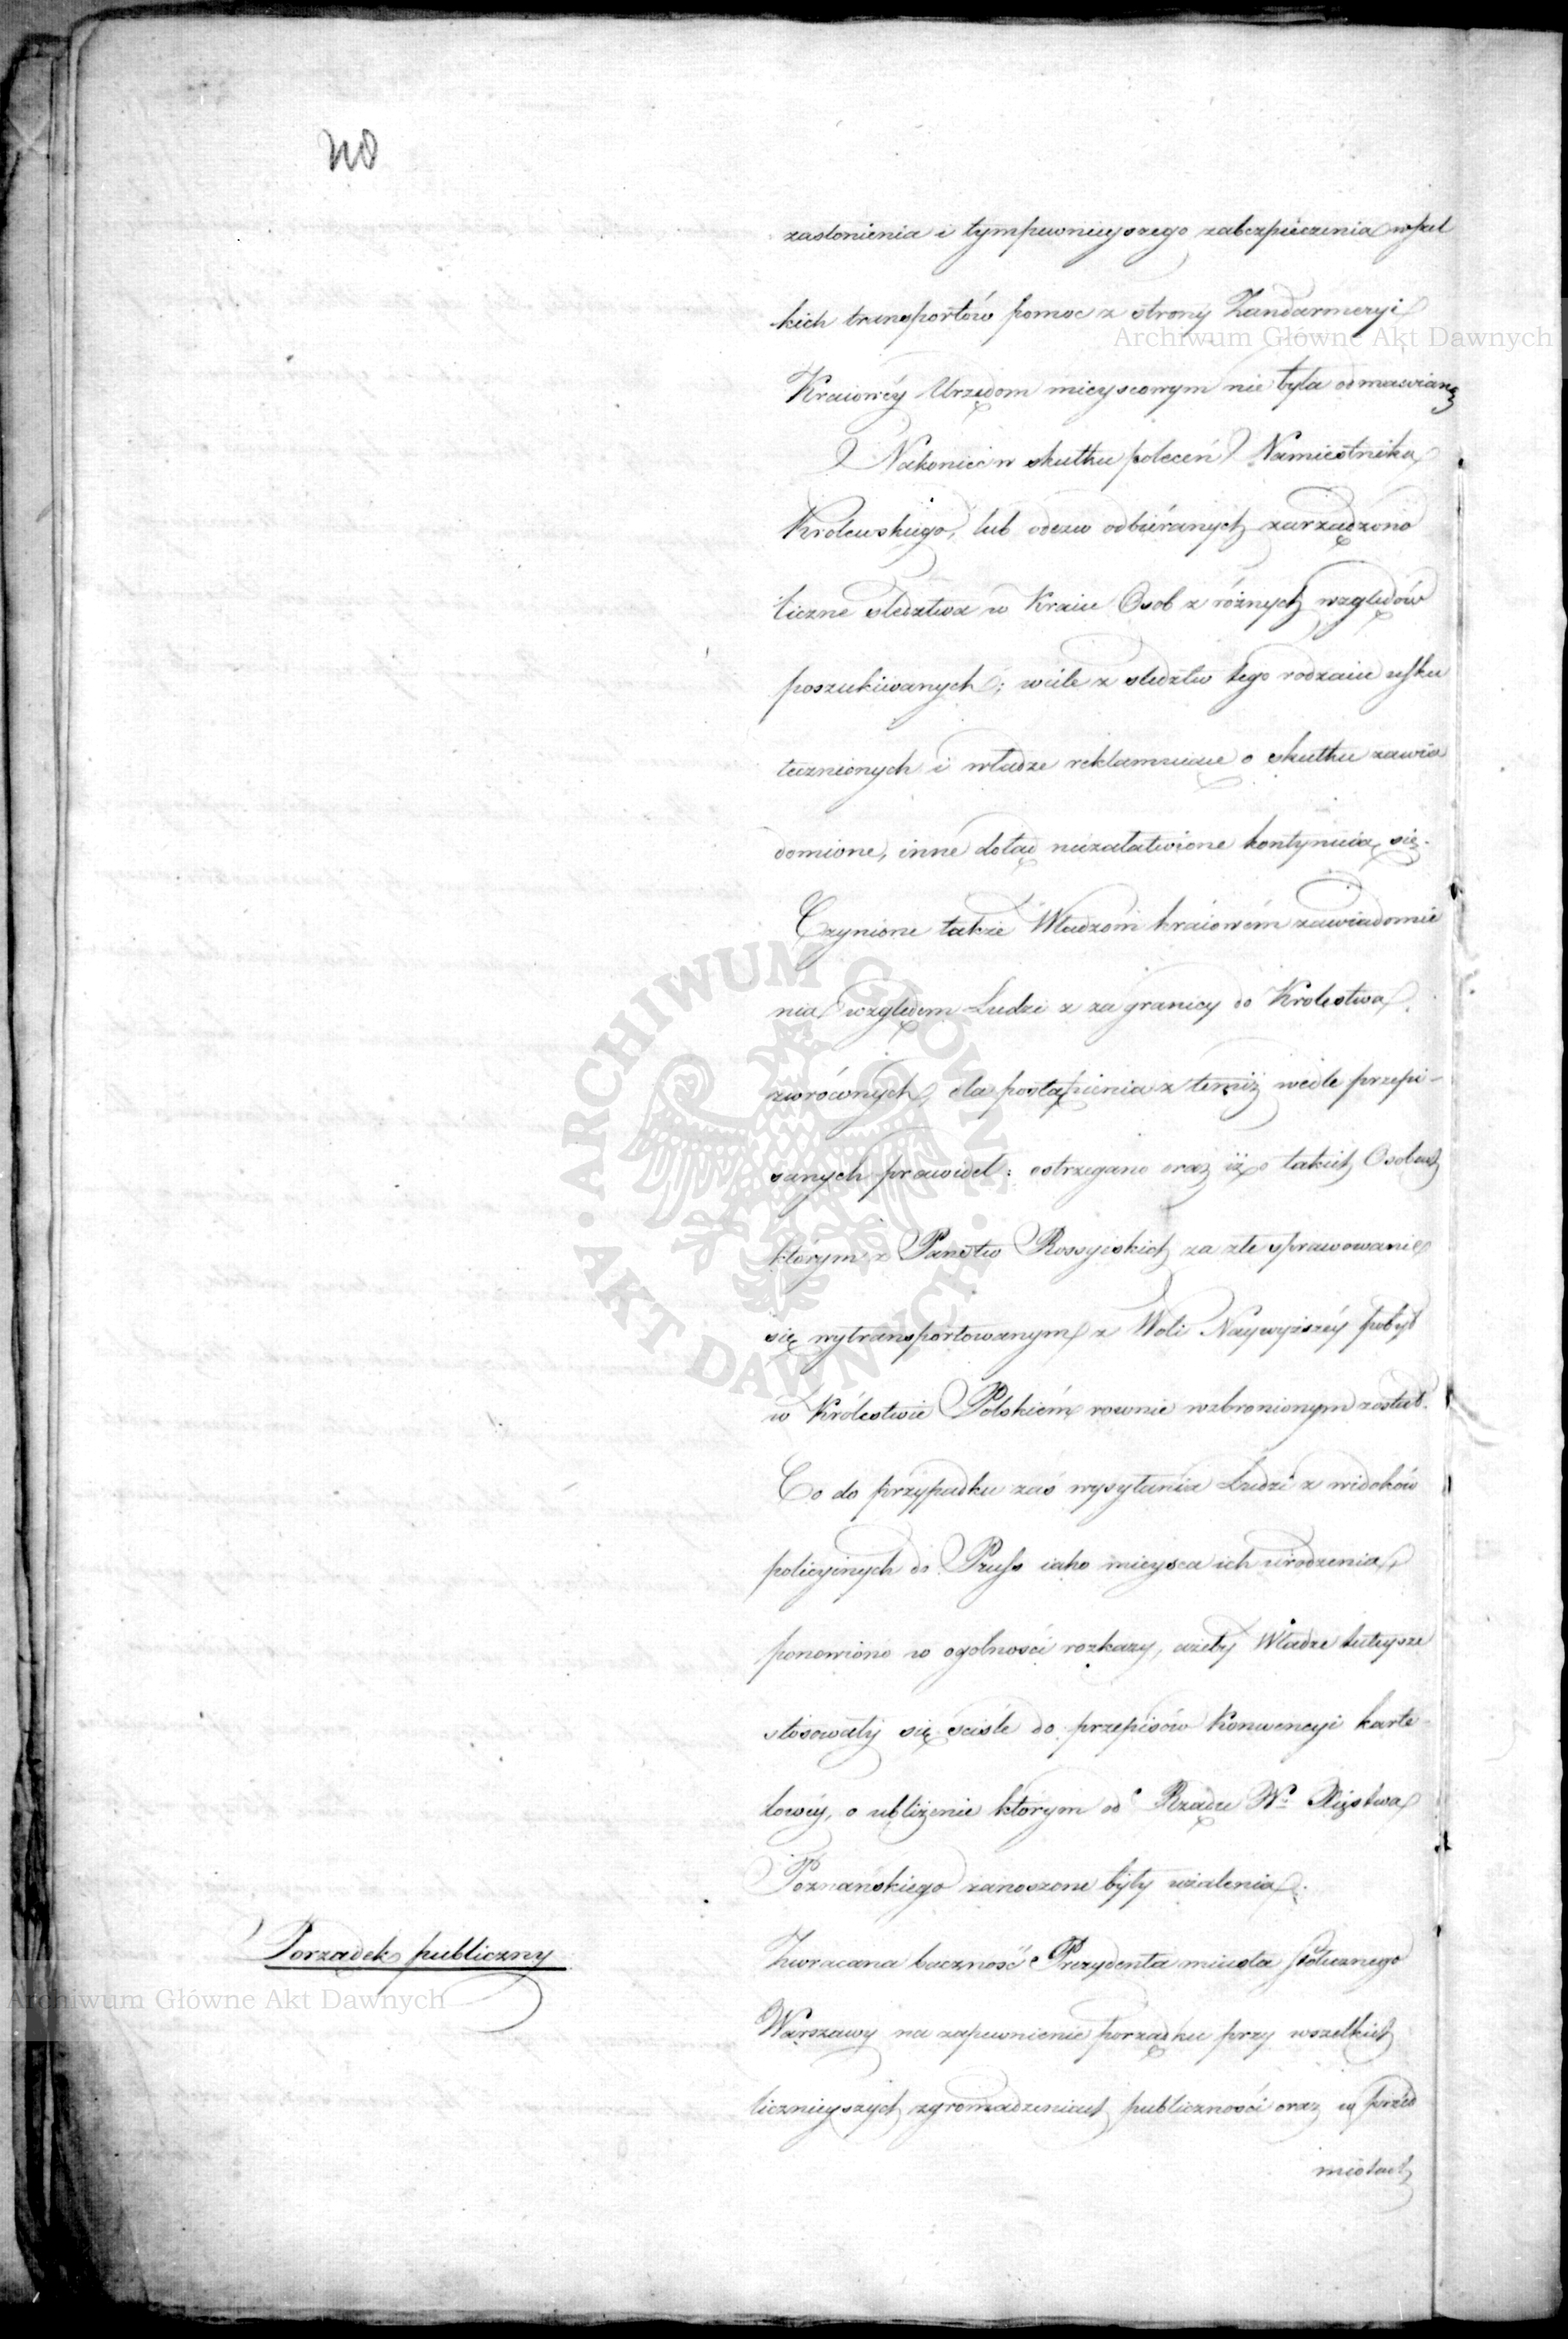 zasłonienia i tympewnieyszego zabezpieczenia wszel
kich transportów pomoc z strony Zandarmeryi
Archiwum Główne Akt Dawnych
Kraiowéy Urzędom mieyscowym nie była odmawianą
Nakoniec w skutku poleceń Namiestnika
Krolewskiego, lub odezw odbiéranych zarządzono
liczne sledztwa w Kraiu Osob z różnych względów
poszukiwanych; wiele z sledztw tego rodzaiu usku
tecznionych i władze reklamuiące o skutku zawia
domione, inne dotąd niezałatwione kontynuią się.
Czynione także Władzom kraiowém zawiadomie
nia względem Ludzi z za granicy do Krolestwa
zwróconych, dla postąpienia z temiż wedle przepi-
sanych prawideł: ostrzegano oraz iż o takich Osobach
którym z Państw Rossyiskich za złe sprawowanie
się wytransportowanym z Woli Naywyższéy pobyt
w Królestwie Polskiém rownie wzbronionym został.
Co do przypadku zaś wysyłania Ludzi z widoków
policyinych do Pruss iako mieysca ich urodzenia
ponowiono w ogolności rozkazy, ażeby Władze tuteysze
stosowały się ściśle do przepisów Konwencyi karte-
lowéy, o ubliżenie którym od Rządu Wº Xięstwa
Poznańskiego zanoszone były użalenia.
Porządek publiczny
Zwracana baczność Prezydenta miasta stołecznego
Archiwum Główne Akt Dawnych
Warszawy na zapewnienie porządku przy wszelkich
licznieyszych zgromadzeniach publiczności oraz w przed
miotach
ARCHIWUM GŁÓWNE
AKT DAWNYCH